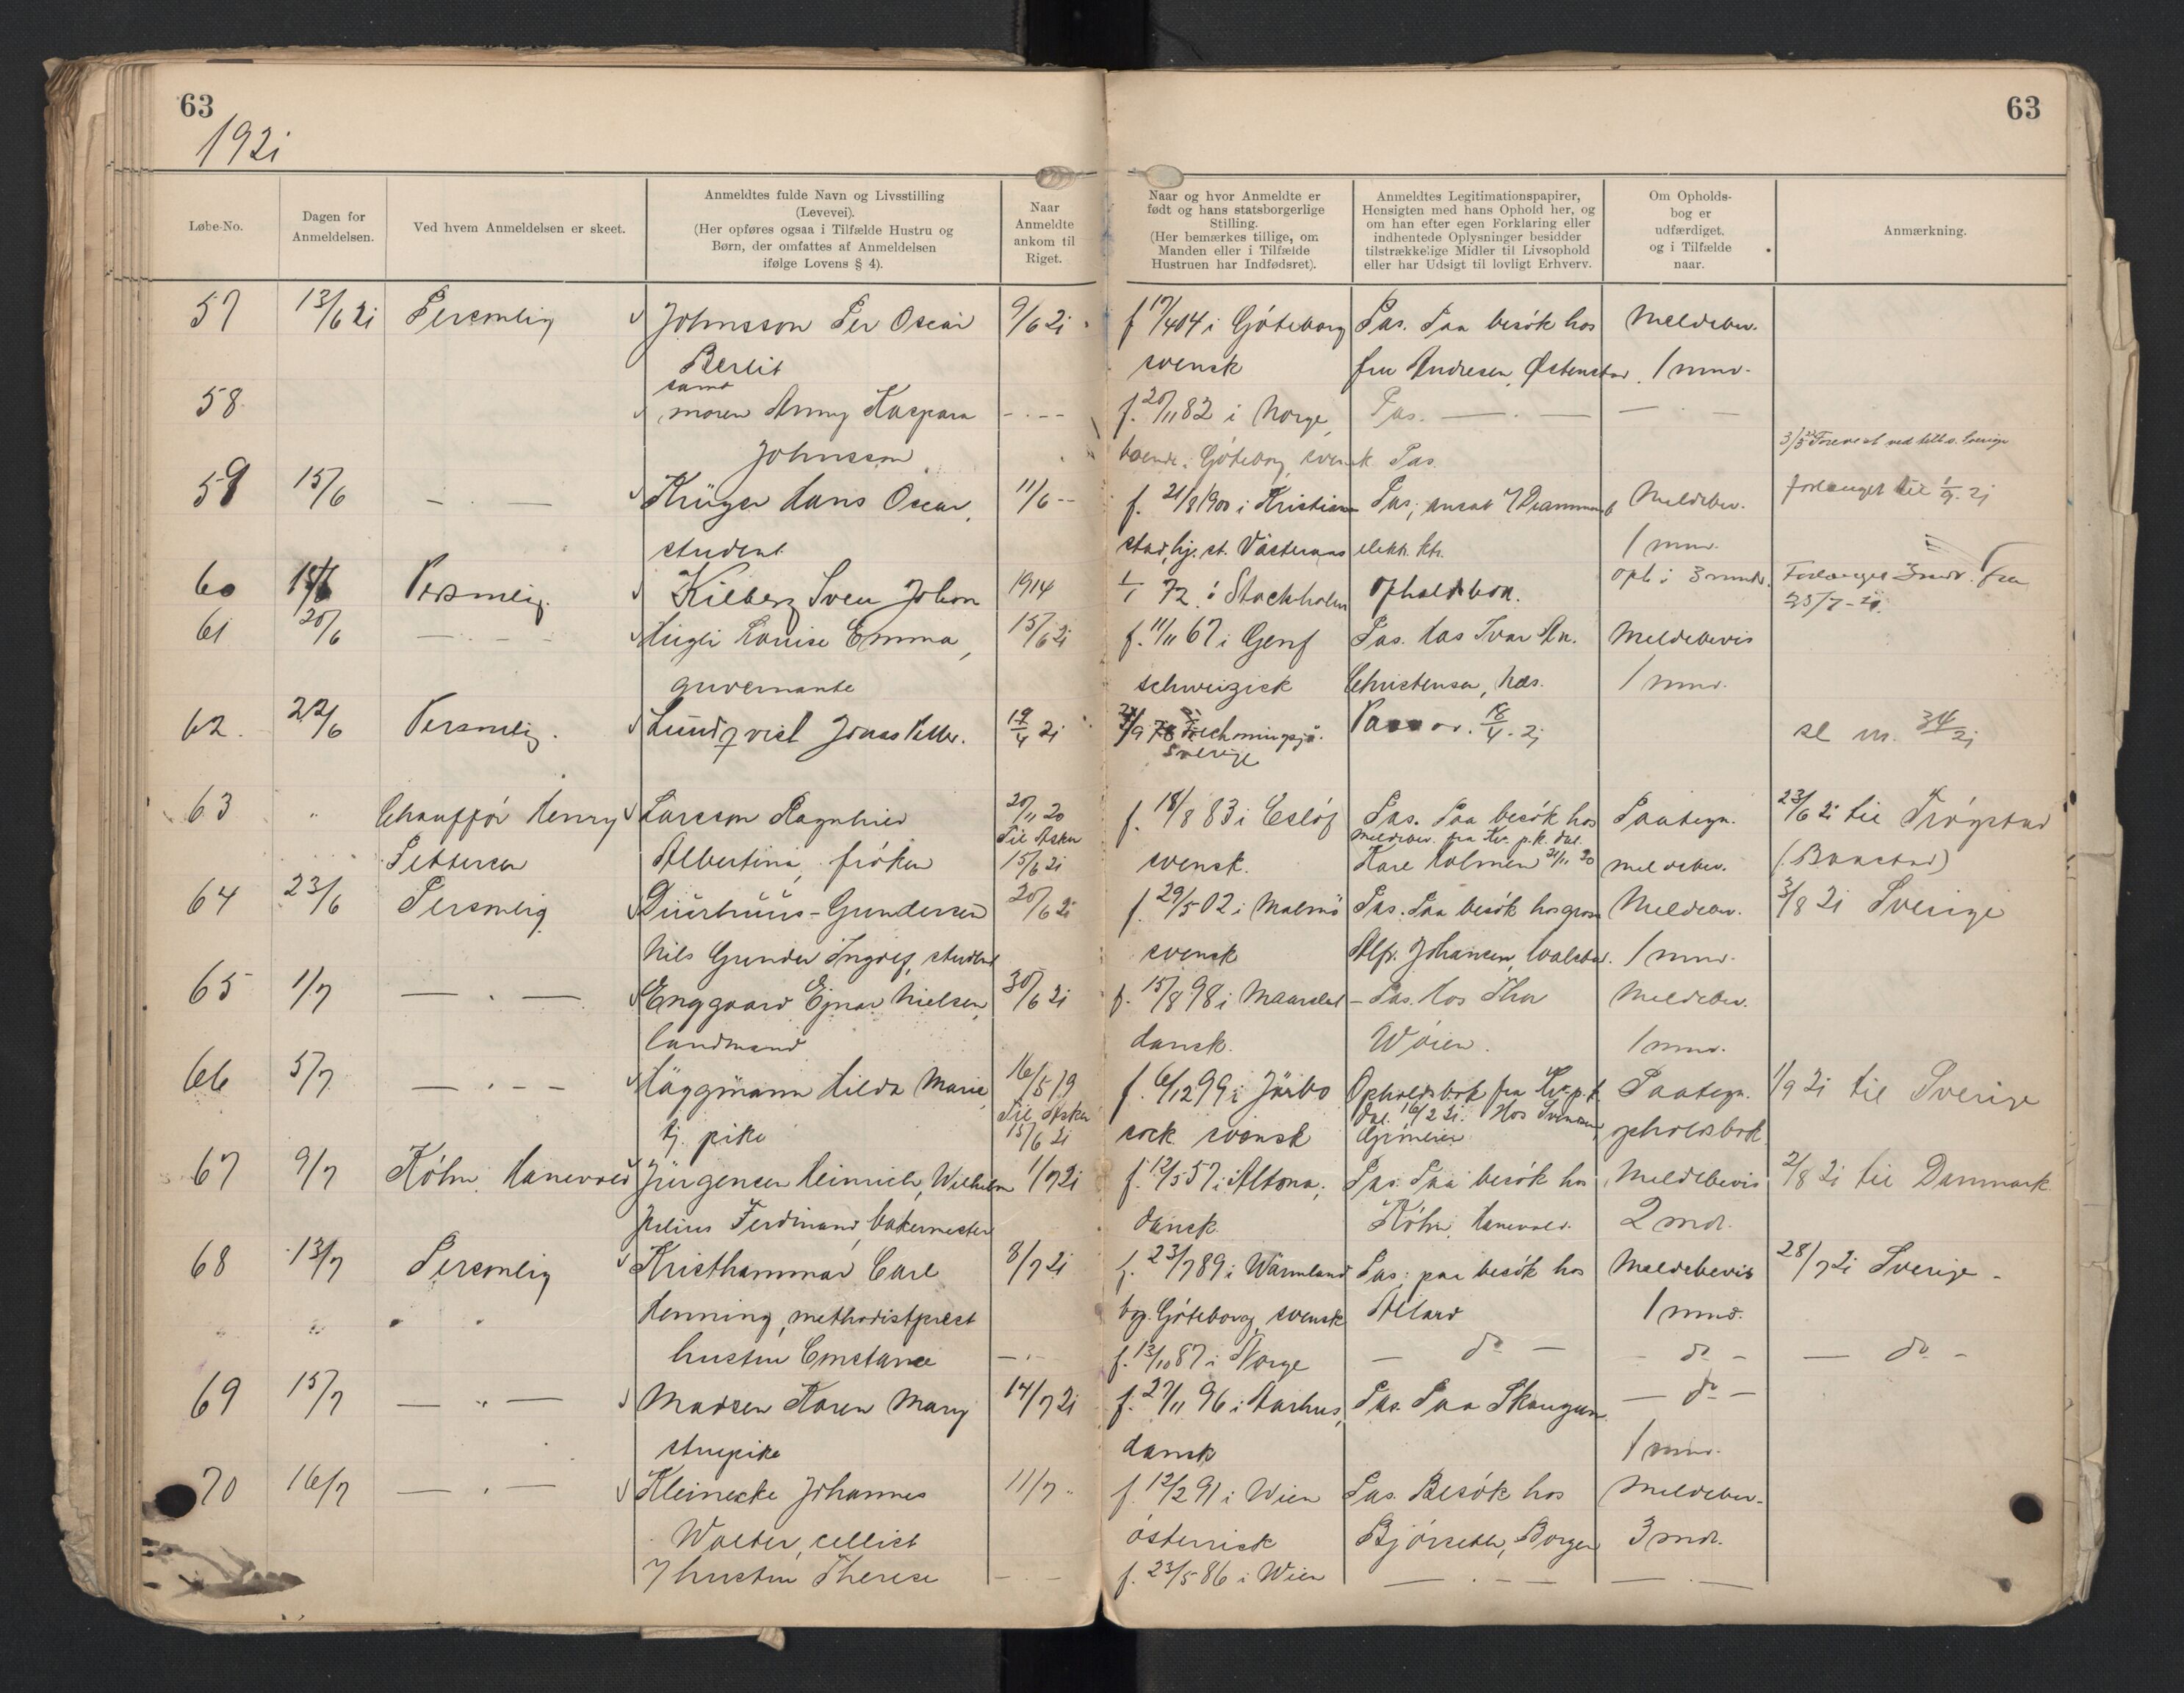 63
63
1921
Løbe-No.
Dagen for
Anmeldelsen.
Ved hvem Anmeldelsen er skeet.
Anmeldtes fulde Navn og Livsstilling
(Levevei).
(Her opføres ogsaa i Tilfælde Hustru og
Børn, der omfattes af Anmeldelsen
ifølge Lovens § 4).
Naar
Anmeldte
ankom til
Riget.
Naar og hvor Anmeldte er
født og hans statsborgerlige
Stilling.
(Her bemærkes tillige, om
Manden eller i Tilfælde
Hustruen har Indfødsret).
Anmeldtes Legitimationspapirer,
Hensigten med hans Ophold her, og
om han efter egen Forklaring eller
indhentede Oplysninger besidder
tilstrækkelige Midler til Livsophold
eller har Udsigt til lovligt Erhverv.
Om Opholds-
bog er
udfærdiget,
og i Tilfælde
naar.
Anmærkning.
57 13/6 21 Personlig Johnsson Per Oscar 9/6 21 f 17/4 04 i Göteborg Pas. Paa besök hos Meldebev.
Berlit svensk fru Andresen, Østenstad. 1 mnd.
samt
58 moren Anny Kaspara - . - - f. 20/11 82 i Norge, Pas. - . - - . -
Johnsson boende i Göteborg, svensk Pas.
59 15/6 - . - Krüger Hans Oscar, 11/6 - - f. 21/8 1900 i Kristian- Pas; ansat Meldebev. forlænget til 1/9. 21
student stad, hj. st. Västeraas elektr. 1 mnd.
60 Personlig. Kilberg Sven Johan 1914 1/1 72 i Stockholm opholdsbok. oph i 3 mndr. Forlænget 3 mdr. fra
25/7-21.
61 20/6 - . - - Hügli Louise Emma, 15/6 21 f. 11/11 67 i Genf Pas. Hos Ivar An. Meldebevis
guvernante schweizisk Christensen, Næs. 1 mnd.
62. 22/6 Personlig. Lundqvist Jonas Petter. 19/4 21 Pass av. 18/4-21
Sverige
63 " Chauffør Henry Larsson Ragnhild 20/11 20 f. 18/8 83 i Eslöf Pas. Paa besök hos Paategn. 23/6 21 til Trögstad
Til Asker
Pettersen Albertina, fröken 15/6 21 svensk. Kare Holmen 21/11 20 meldebev. (Baastad)
64 23/6 Personlig Düürhüüs-Gundersen 20/6 21 f. 29/5 02 i Malmö Pas. Paa besök hos gross Meldebev. 3/8 21 Sverige
Nils Gunder Ingolf, student svensk Alfr. Johansen, Hvalstad. 1 mnd.
65 1/7 - . - Enggaard Ejnar Nielsen, 30/6 21 f. 15/8 98 i Maarslet - Pas. Hos Thor Meldebev.
landmand dansk. Wöien. 1 mnd.
66 5/7 - . - - Häggmann Hilda Marie, 16/5 19 f. 6/12 99 i Järbo Opholdsbok fra Kr. p.k. Paategn. 1/9 21 til Sverige
Til Asker dal. 16/2 21. Hos Svensen,
tj. pike 15/6 21 sock. svensk opholdsbok
67 9/7 Köhn, Hanevold Jürgensen Heinrich, Wilhelm 1/7 21 f. 12/5 57 i Altona, Pas. Paa besök hos Meldebevis 2/8 21 til Danmark
Julius Ferdinand, bakermester dansk. Köhn, Hanevold. 2 mdr.
68 13/7 Personlig Kristhammar Carl 8/7 21 f. 23/7 89 i Wärmland Pas; paa besök hos Meldebevis 28/7 21 Sverige -
Henning, methodistprest bg. Göteborg, svensk Allard 1 mnd.
hustru Constance - . - f. 13/10 87 i Norge - do - - do - - do -
69 15/7 - " - Madsen Karen Mary 14/7 21 f. 27/11 96 i Aarhus, Pas. Paa Skaugum. - do -
stuepike dansk 1 mnd.
70 16/7 - . - Kleinecke Johannes 11/7 - f. 12/2 91 i Wien Pas. Besök hos Meldebev.
Walter, cellist österrisk Bjørseth, Borgen 3 mdr.
hustru Therese - . - f. 23/5 86 i Wien - . - - - . -